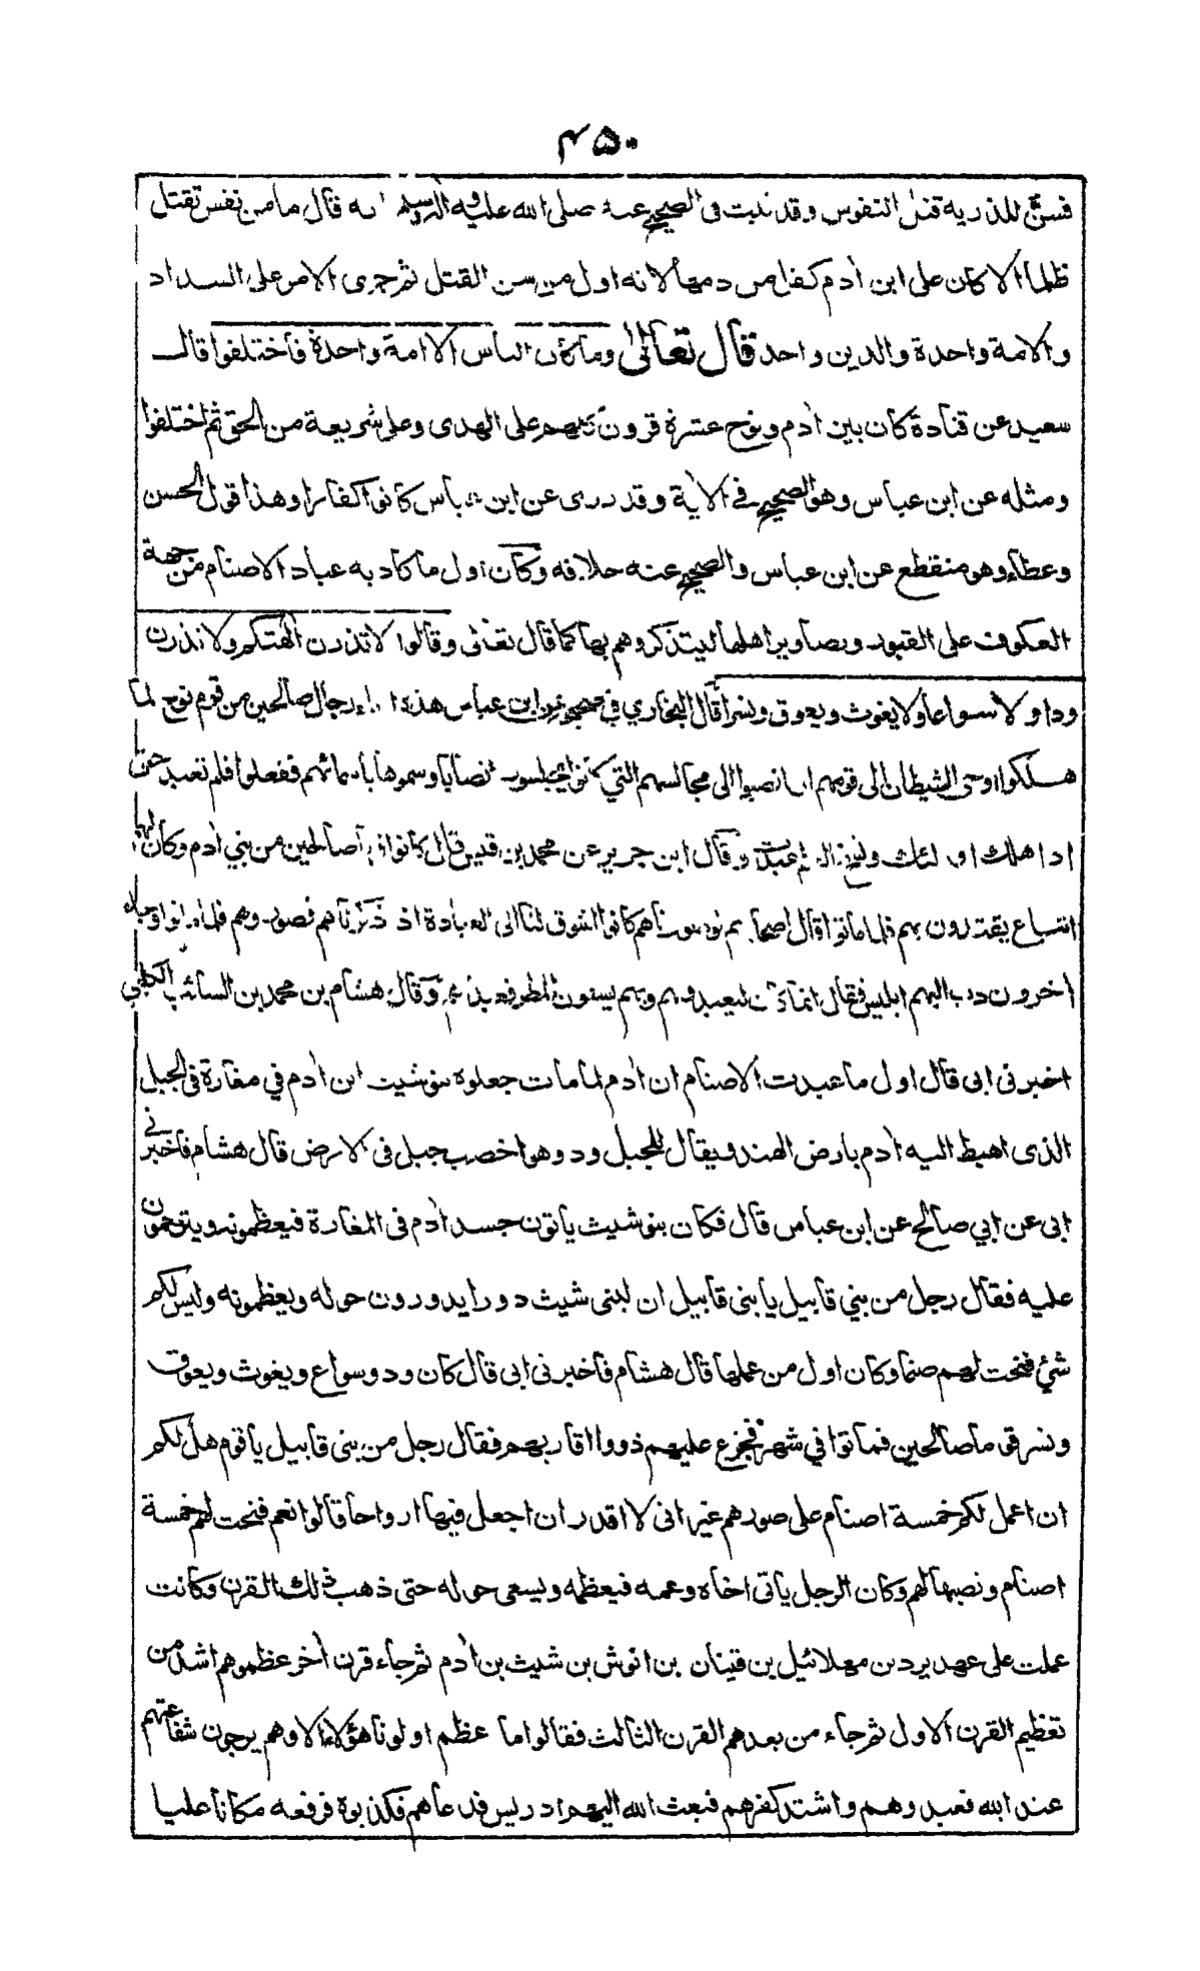 ۴۵۰
فسن للذرية قتل النفوس وقد ثبت في الصحيح عنه صلى الله عليه وآله وسلم انه قال ما من نفس تقتل
ظلما الا كان على ابن ادم كفل من دمها لانه اول من سن القتل ثم جرى الامر على السداد
والامة واحدة والدين واحد قال تعالى وما كان الناس الا امة واحدة فاختلفوا قال
سعيد عن قتادة كان بين ادم ونوح عشرة قرون كلهم على الهدى وعلى شريعة من الحق ثم اختلفوا
ومثله عن ابن عباس وهو الصحيح في الاية وقد روى عن ابن عباس كانوا كفارا وهذا قول الحسن
وعطاء وهو منقطع عن ابن عباس والصحيح عنه خلافه وكان اول ما كاد به عباد الاصنام من جهة
العكوف على القبور وتصاوير اهلها ليتذكروهم بها كما قال تعالى وقالوا لا تذرن الهتكم ولا تذرن
ودا ولا سواعا ولا يغوث ويعوق ونسرا قال البخاري في صحيحه عن ابن عباس هذه اسماء رجال صالحين من قوم نوح لما
هلكوا اوحى الشيطان الى قومهم ان انصبوا الى مجالسهم التي كانوا يجلسون انصابا وسموها باسمائهم ففعلوا فلم تعبد حتى
اذا هلك اولئك ونسخ العلم عبدت وقال ابن جرير عن محمد بن قيس قال كانوا قوما صالحين من بني ادم وكان لهم
اتباع يقتدرون بهم فلما ماتوا قال اصحابهم لو صورناهم كانوا اشوق لنا الى العبادة اذ ذكرناهم فصوروهم فلما ماتوا وجاء
اخرون دب اليهم ابليس فقال انما كان يعبدونهم وبهم يسقون المطر فعبدوهم وقال هشام بن محمد بن السائب الكلبي
اخبرني ابي قال اول ما عبدت الاصنام ان ادم لما مات جعلوه بنو شيث ابن ادم في مغارة في الجبل
الذي اهبط اليه ادم بارض الهند ويقال للجبل ود وهو اخصب جبل في الارض قال هشام فاخبرني
ابي عن ابي صالح عن ابن عباس قال فكان بنو شيث ياتون جسد ادم في المغارة فيعظمونه ويترحمون
عليه فقال رجل من بني قابيل يا بني قابيل ان لبني شيث دوارا يدورون حوله ويعظمونه وليس لكم
شئ فنحت لهم صنما وكان اول من عملها قال هشام فاخبرني ابي قال كان ود وسواع ويغوث ويعوق
ونسر قوما صالحين فماتوا في شهر فجزع عليهم ذووا اقاربهم فقال رجل من بني قابيل يا قوم هل لكم
ان اعمل لكم خمسة اصنام على صورهم غير اني لا اقدر ان اجعل فيها ارواحا قالوا نعم فنحت لهم خمسة
اصنام ونصبها لهم وكان الرجل ياتي اخاه وعمه فيعظمه ويسعى حوله حتى ذهب ذلك القرن وكانت
عملت على عهد يرد بن مهلائيل بن قينان بن انوش بن شيث بن ادم ثم جاء قرن اخر عظموهم اشد من
تعظيم القرن الاول ثم جاء من بعدهم القرن الثالث فقالوا ما عظم اولونا هؤلاء الا وهم يرجون شفاعتهم
عند الله فعبدوهم واشتد كفرهم فبعث الله اليهم ادريس فدعاهم فكذبوه فرفعه مكانا عليا